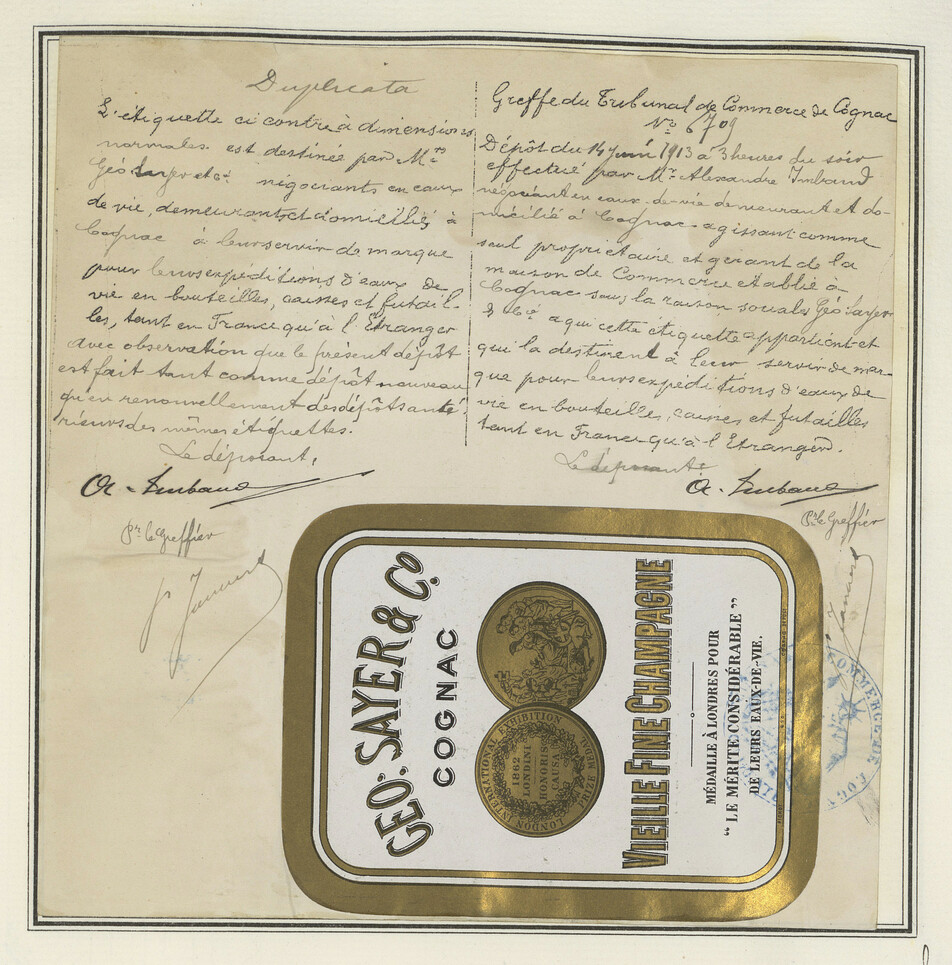 Duplicata
L'étiquette ci contre à dimensions
normales est destinée par Mrs
Géo Sayer et Cie négociants en eaux
de vie, demeurants et domiciliés à
Cognac à leur servir de marque
pour leurs expéditions d'eaux de
vie en bouteilles, caisses et futail-
les, tant en France qu'à l'Etranger
avec observation que le présent dépôt
est fait tant comme dépôt nouveau
qu'en renouvellement des dépôts anté-
rieurs des mêmes étiquettes.
Le déposant,
A. Imbaud
Pr le Greffier
Greffe du Tribunal de Commerce de Cognac
No 6709
Dépôt du 14 juin 1913 à 3 heures du soir
effectué par Mr Alexandre Imbaud
négociant en eaux-de-vie demeurant et do-
micilié à Cognac agissant comme
seul propriétaire et gérant de la
maison de Commerce établie à
Cognac sous la raison sociale Géo Sayer
& Cie à qui cette étiquette appartient et
qui la destinent à leur servir de mar-
que pour leurs expéditions d'eaux de
vie en bouteilles, caisses et futailles
tant en France qu'à l'Etranger.
Le déposant,
A. Imbaud
Pr le Greffier
GEO: SAYER & Co.
COGNAC
INTERNATIONAL EXHIBITION
LONDON PRIZE MEDAL
1862
LONDINI
HONORIS
CAUSA
VIEILLE FINE CHAMPAGNE
MÉDAILLE À LONDRES POUR
"LE MÉRITE CONSIDÉRABLE"
DE LEURS EAUX-DE-VIE.
COMMERCE DE COGN